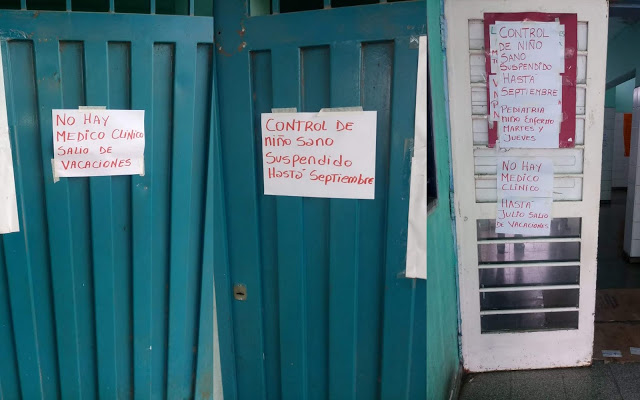 NO HAY
MEDICO CLÍNICO
SALIO DE
VACACIONES
CONTROL DE
niño Sano
Suspendido
Hasta Septiembre
CONTROL
DE NIÑO
SANO
SUSPENDIDO
HASTA
SEPTIEMBRE
PEDIATRIA
NIÑO ENFERMO
MARTES Y
JUEVES
NO HAY
MEDICO
CLÍNICO
HASTA
JULIO SALIO
DE VACACIONES